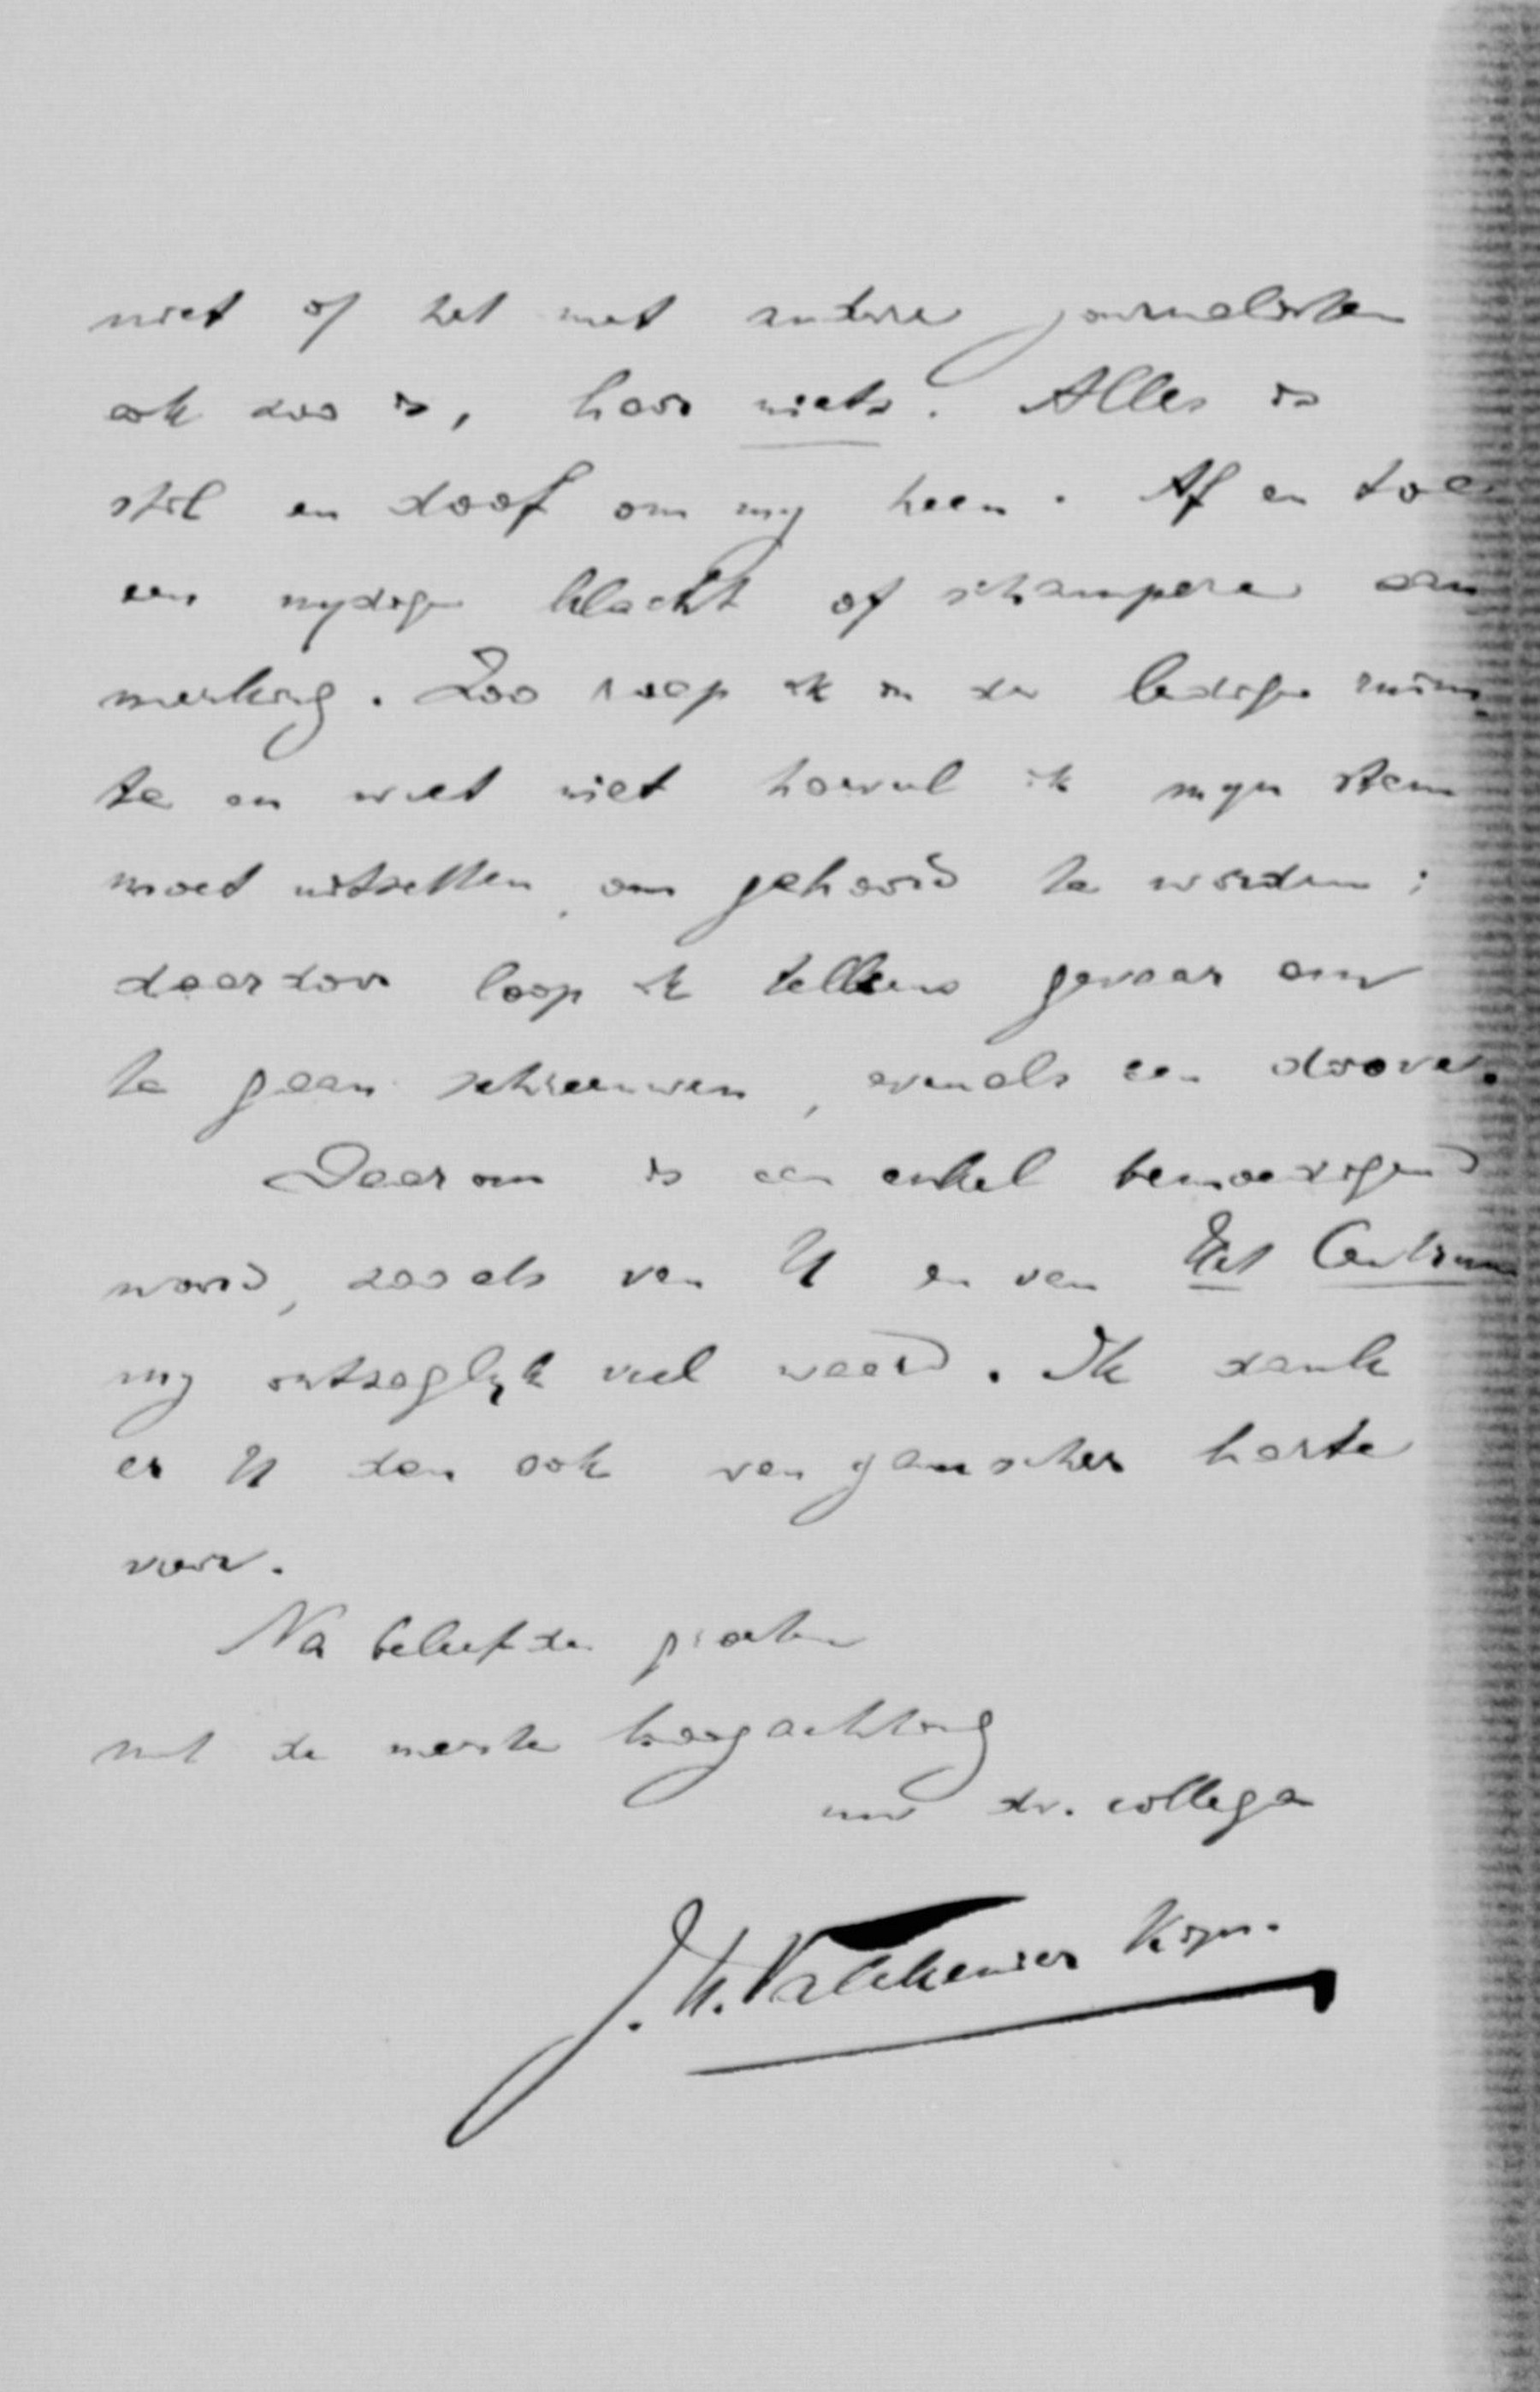 niet of het met andere journalisten
ook zoo is, hoor niets. Alles is
stil en doof om mij heen. Af en toe
een nijdige klacht of schampere aan
merking. Zoo roep ik in de ledige ruim
te en weet niet hoeveel ik mijn stem
moet uitzetten, om gehoord te worden;
daardoor loop ik telkens gevaar om
te gaan schreeuwen, evenals een doove.
Daarom is een enkel bemoedigend
woord, zooals van U en van Het Centrum
mij ontzaglijk veel waard. Ik dank
er U dan ook van ganscher harte
voor.
Na beleefde groeten
met de meeste hoogachting
uw dv. collega
J. H. Valckenier Kips.